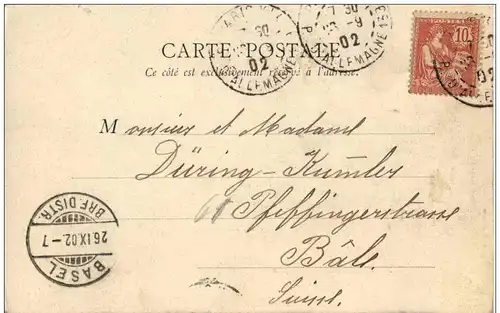 CARTE POSTALE
Ce côté est exclusivement réservé à l'adresse.
Monsieur et Madame
Düring-Kumler
60 Pfeffingerstrasse
Bâle.
Suisse.
10
7 30
02
ALLEMAGNE
02
ALLEMAGNE
BASEL
26.IX.02.-7
BRF.DISTR.